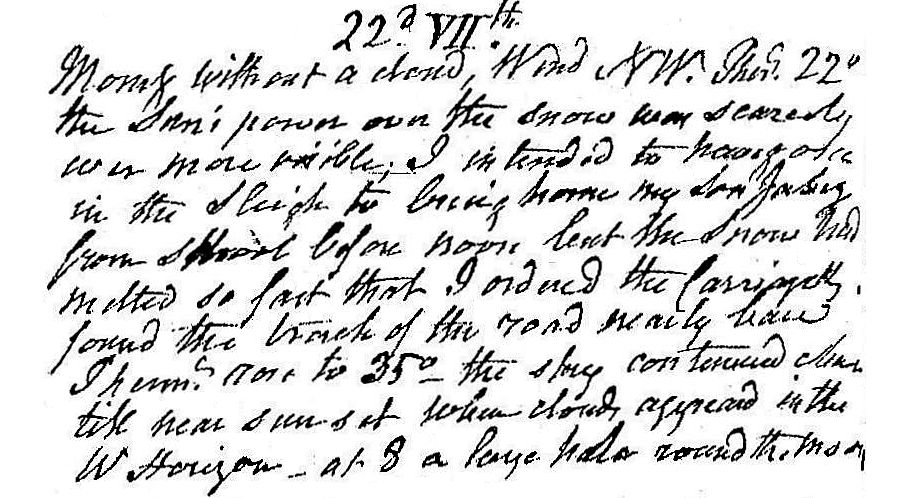 22.d VII.th
Morng without a cloud, Wind NW. Ther. 22°
the Sun's power over the snow was scarcely
ever more visible, I intended to have gone
in the Sleigh to bring home my Son
from School before noon but the Snow had
melted so fast that I ordered the Carriage &
found the track of the road nearly bare
Thermr. rose to 35° – the sky continued clear
till near sunset when clouds appeard in the
W Horizon – at 8 a large halo round the moon